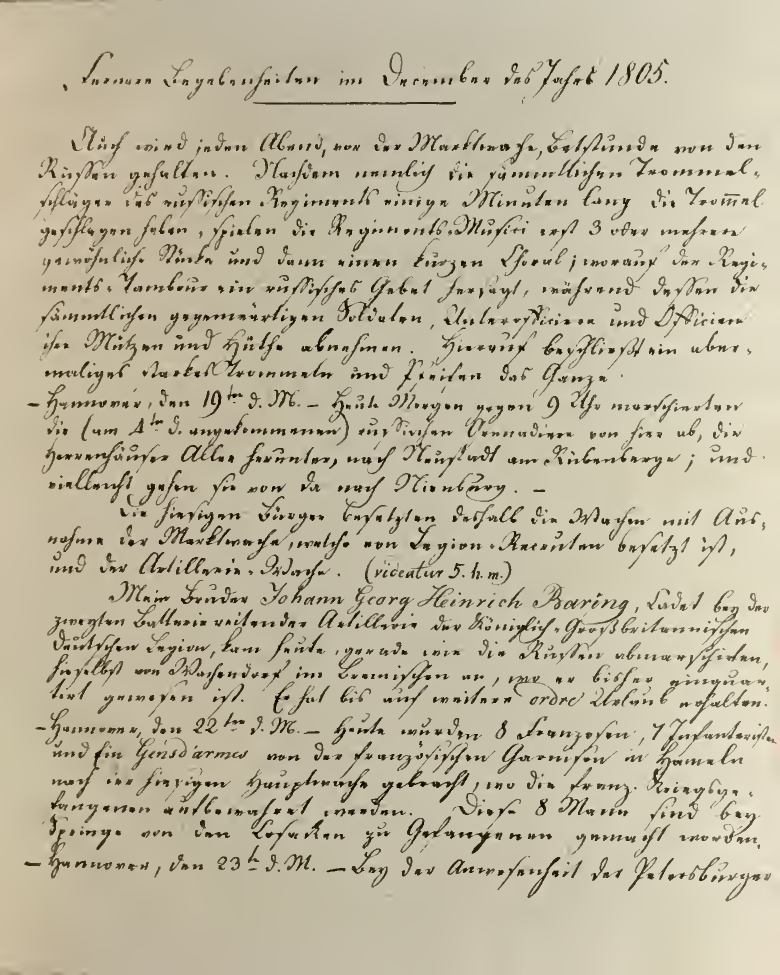 Fernere Begebenheiten im December des Jahrs 1805.
Auch wird jeden Abend, vor der Marktwache, Betstunde von den
Russen gehalten. Nachdem nemlich die sämmtlichen Trommel-
schläger des russischen Regiments einige Minuten lang die Trom̄el
geschlagen haben, spielen die Regiments-Musici erst 3 oder mehrere
gewöhnliche Stücke und dann einen kurzen Choral; worauf der Regi-
ments-Tambour ein russisches Gebet hersagt, während dessen die
sämmtlichen gegenwärtigen Soldaten, Unterofficiere und Officiere
ihre Mützen und Hüthe abnehmen. Hierauf beschließt ein aber-
maliges starkes Trommeln und Pfeifen das Ganze.
– Hannover, den 19ten d. M. – Heute Morgen gegen 9 Uhr marschierten
die (am 4ten d. angekommenen) russischen Grenadiere von hier ab, die
Herrenhäuser Allee herunter, nach Neustadt am Rübenberge; und
vielleicht gehen sie von da nach Nienburg. –
Die hiesigen Bürger besetzten deshalb die Wachen mit Aus-
nahme der Marktwache, welche von Legion-Recruten besetzt ist,
und der Artillerie-Wache. (videatur 5. h. m.)
Mein Bruder Johann Georg Heinrich Baring, Cadet bey der
zweyten Batterie reitender Artillerie der Königlich-Großbritannischen
Deutschen Legion, kam heute, gerade wie die Russen abmarschirten,
hieselbst von Wachendorf im Bremischen an, wo er bisher einquar-
tirt gewesen ist. Er hat bis auf weitere ordre Urlaub erhalten.
– Hannover, den 22ten d. M. – Heute wurden 8 Franzosen, 7 Infanteristen
und Ein Gensd'armes von der französischen Garnison in Hameln
nach der hiesigen Hauptwache gebracht, wo die franz. Kriegsge-
fangenen aufbewahret werden. Diese 8 Mann sind bey
Springe von den Cosacken zu Gefangenen gemacht worden.
– Hannover, den 23t d. M. – Bey der Anwesenheit der Petersburger